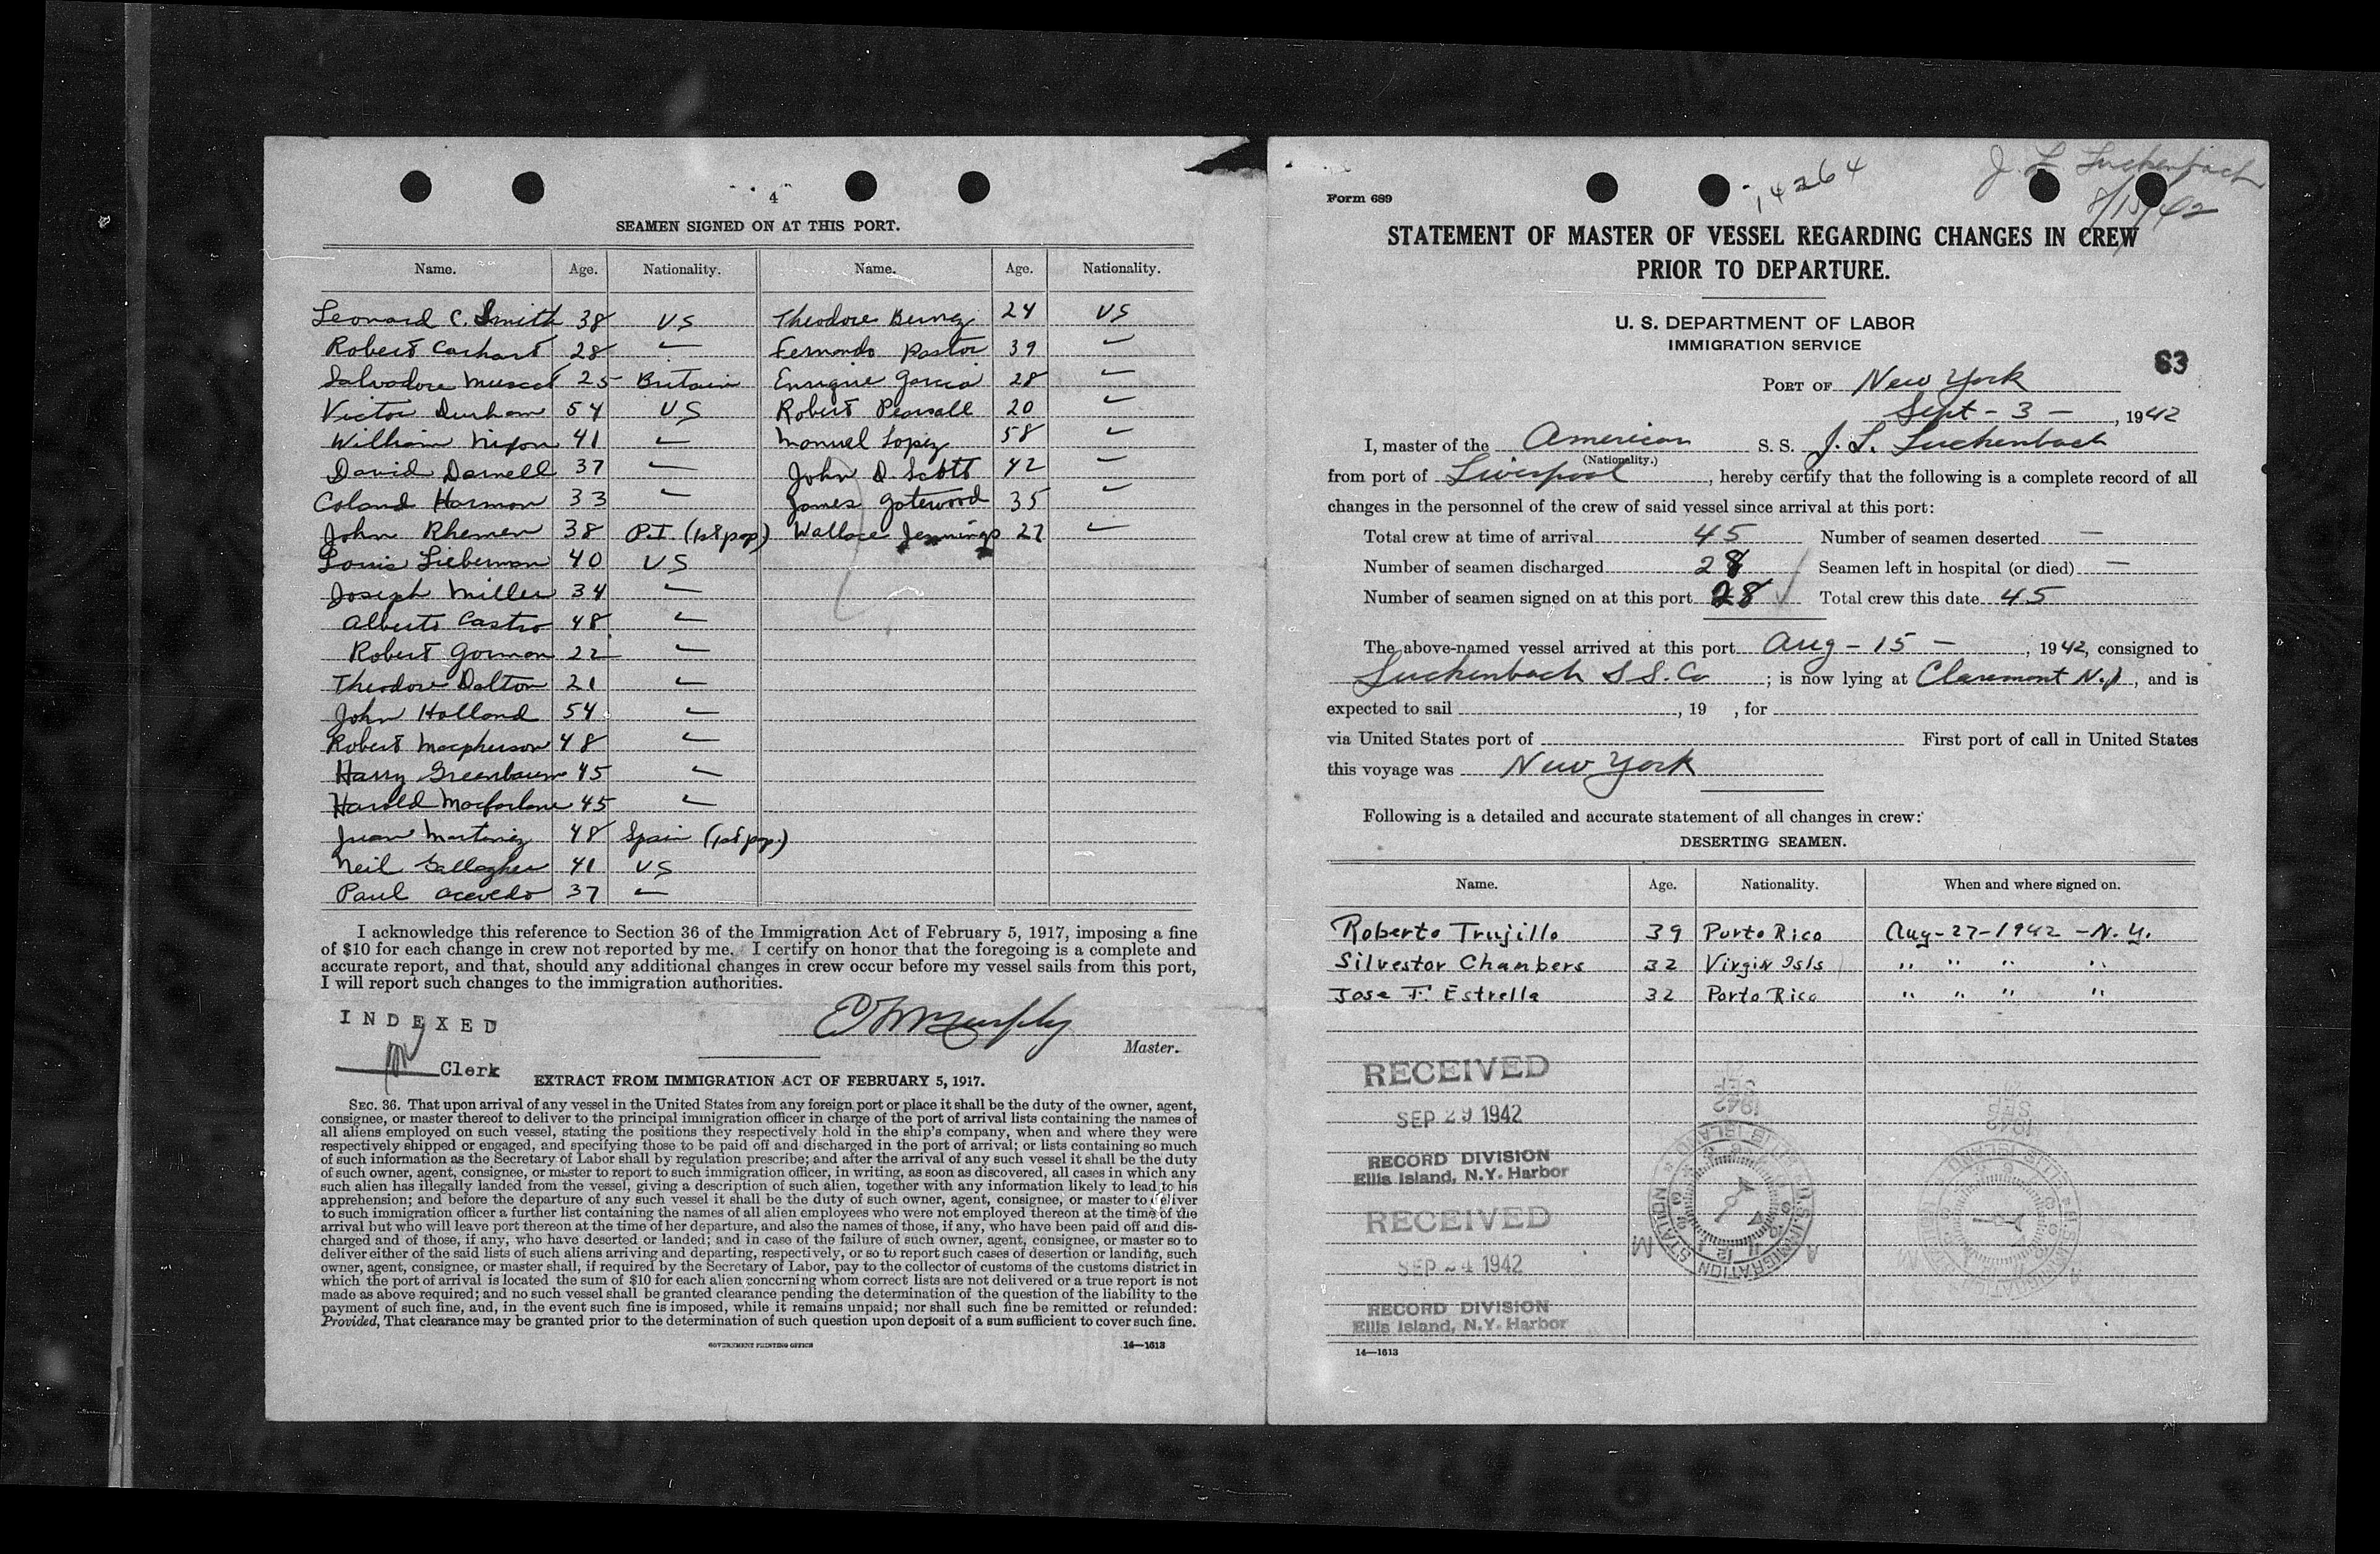 4
SEAMEN SIGNED ON AT THIS PORT.
Name. Age. Nationality. Name. Age. Nationality.
Leonard C. Smith 38 US Theodore 24 US
Robert Carhart 28 " Fernando Pastor 39 "
Salvadore Muscat 25 Britain Enrique Garcia 28 "
Victor Durham 54 US Robert Pearsall 20 "
William Nixon 41 " Manuel Lopez 58 "
David Darnell 37 " John D. Scott 42 "
Coland Harmon 33 " James Gatewood 35 "
John Rhemen 38 P.I. (1st pap) Wallace Jennings 27 "
Louis Lieberman 40 US
Joseph Miller 34 "
Alberto Castro 48 "
Robert Gorman 22 "
Theodore Dalton 21 "
John Holland 54 "
Robert Macpherson 48 "
Harry Greenbaum 45 "
Harold Macfarlane 45 "
Juan Martinez 48 Spain (1st pap.)
Neil Gallagher 41 US
Paul Acevedo 37 "
I acknowledge this reference to Section 36 of the Immigration Act of February 5, 1917, imposing a fine
of $10 for each change in crew not reported by me. I certify on honor that the foregoing is a complete and
accurate report, and that, should any additional changes in crew occur before my vessel sails from this port,
I will report such changes to the immigration authorities.
INDEXED
Murphy
Master.
Clerk
EXTRACT FROM IMMIGRATION ACT OF FEBRUARY 5, 1917.
SEC. 36. That upon arrival of any vessel in the United States from any foreign port or place it shall be the duty of the owner, agent,
consignee, or master thereof to deliver to the principal immigration officer in charge of the port of arrival lists containing the names of
all aliens employed on such vessel, stating the positions they respectively hold in the ship's company, when and where they were
respectively shipped or engaged, and specifying those to be paid off and discharged in the port of arrival; or lists containing so much
of such information as the Secretary of Labor shall by regulation prescribe; and after the arrival of any such vessel it shall be the duty
of such owner, agent, consignee, or master to report to such immigration officer, in writing, as soon as discovered, all cases in which any
such alien has illegally landed from the vessel, giving a description of such alien, together with any information likely to lead to his
apprehension; and before the departure of any such vessel it shall be the duty of such owner, agent, consignee, or master to deliver
to such immigration officer a further list containing the names of all alien employees who were not employed thereon at the time of the
arrival but who will leave port thereon at the time of her departure, and also the names of those, if any, who have been paid off and dis-
charged and of those, if any, who have deserted or landed; and in case of the failure of such owner, agent, consignee, or master so to
deliver either of the said lists of such aliens arriving and departing, respectively, or so to report such cases of desertion or landing, such
owner, agent, consignee, or master shall, if required by the Secretary of Labor, pay to the collector of customs of the customs district in
which the port of arrival is located the sum of $10 for each alien concerning whom correct lists are not delivered or a true report is not
made as above required; and no such vessel shall be granted clearance pending the determination of the question of the liability to the
payment of such fine, and, in the event such fine is imposed, while it remains unpaid; nor shall such fine be remitted or refunded:
Provided, That clearance may be granted prior to the determination of such question upon deposit of a sum sufficient to cover such fine.
GOVERNMENT PRINTING OFFICE 14—1613
J. L. Luckenbach
8/15/42
14264
Form 689
STATEMENT OF MASTER OF VESSEL REGARDING CHANGES IN CREW
PRIOR TO DEPARTURE.
U. S. DEPARTMENT OF LABOR
IMMIGRATION SERVICE
63
PORT OF New York
Sept - 3 - , 1942
I, master of the American S. S. J. L. Luckenbach
(Nationality.)
from port of Liverpool, hereby certify that the following is a complete record of all
changes in the personnel of the crew of said vessel since arrival at this port:
Total crew at time of arrival 45 Number of seamen deserted —
Number of seamen discharged 28 Seamen left in hospital (or died) —
Number of seamen signed on at this port 28 Total crew this date 45
The above-named vessel arrived at this port Aug - 15 - , 1942, consigned to
Luckenbach S S. Co ; is now lying at Claremont N.J., and is
expected to sail , 19 , for
via United States port of First port of call in United States
this voyage was New York
Following is a detailed and accurate statement of all changes in crew:
DESERTING SEAMEN.
Name. Age. Nationality. When and where signed on.
Roberto Trujillo 39 Porto Rico Aug-27-1942 - N.Y.
Silvestor Chambers 32 Virgin Isls " " " "
Jose F. Estrella 32 Porto Rico " " " "
RECEIVED
SEP 29 1942
RECORD DIVISION
Ellis Island, N.Y. Harbor
RECEIVED
SEP 24 1942
RECORD DIVISION
Ellis Island, N.Y. Harbor
SEP
1942
U.S. IMMIGRATION STATION ELLIS ISLAND
A M
SEP
1942
14—1613